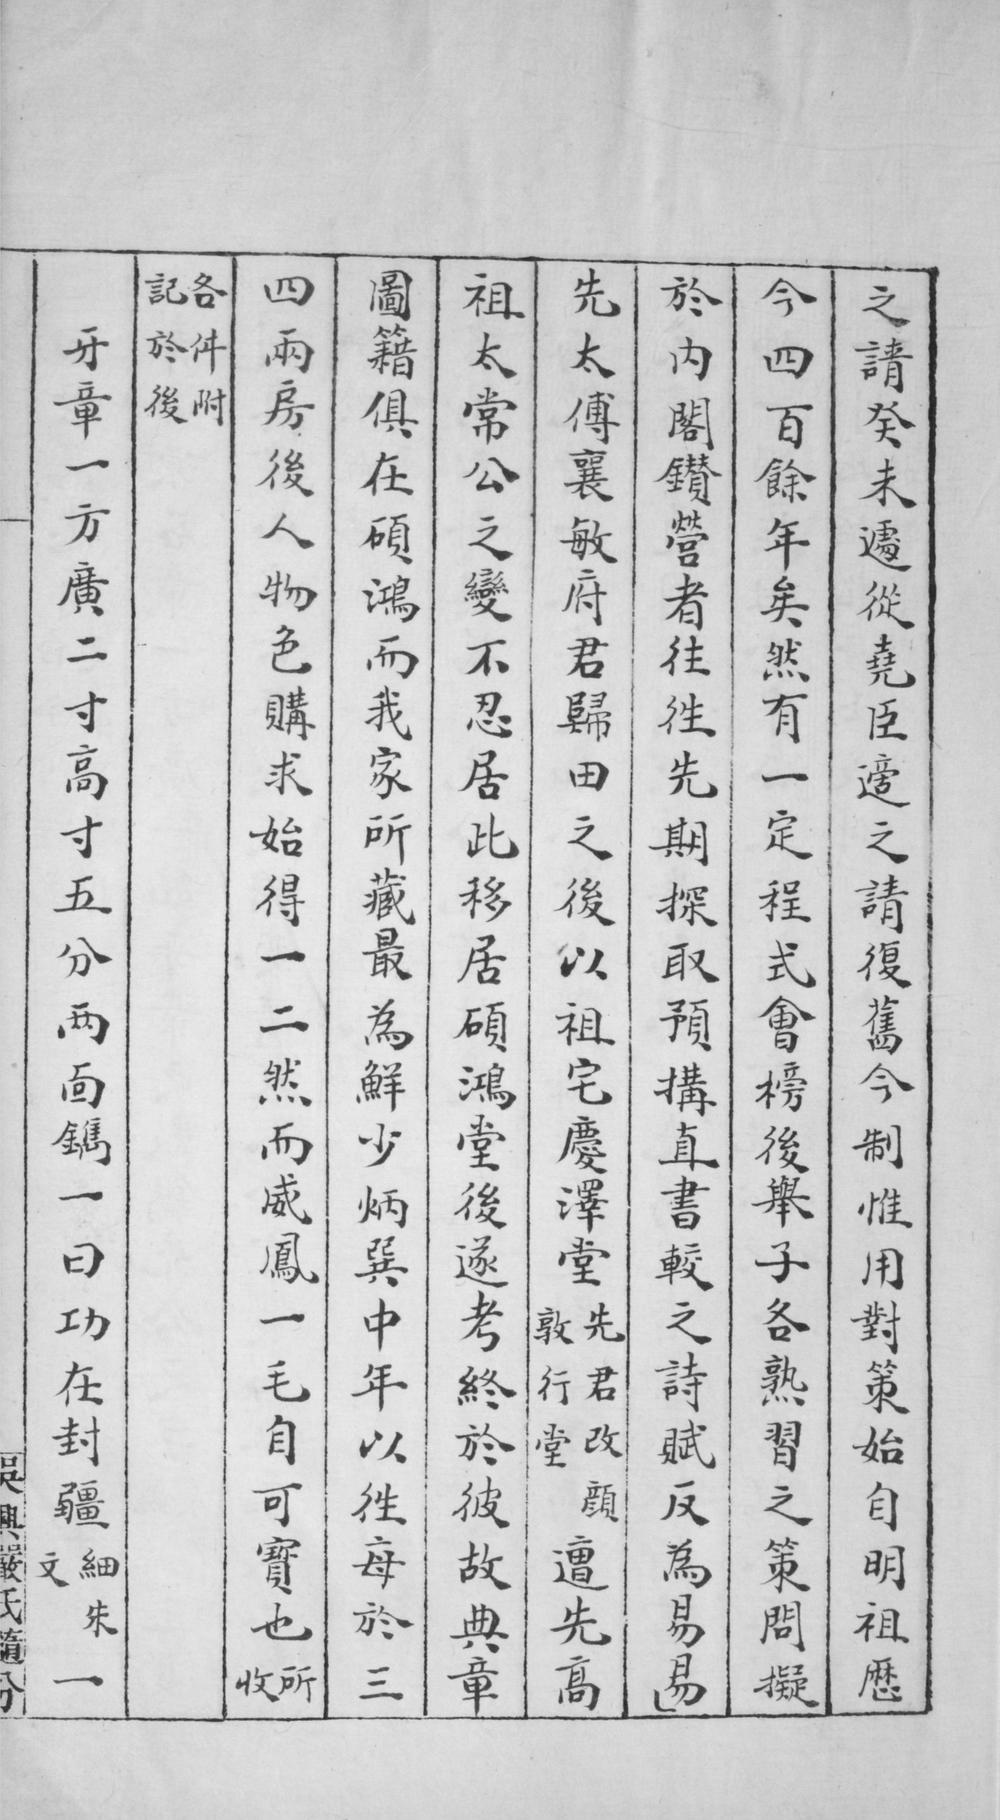 之請癸未遽從堯臣遊之請復舊今制惟用對策始自明祖歷
今四百餘年矣然有一定程式會榜後舉子各熟習之策問擬
於内閣鑽營者往往先期探取預搆直書較之詩賦反為易易
先太傅襄敏府君歸田之後以祖宅慶澤堂先君改顔敦行堂遭先高
祖太常公之變不忍居此移居碩鴻堂後遂考終於彼故典章
圖籍俱在碩鴻而我家所藏最為鮮少炳巽中年以往每於三
四兩房後人物色購求始得一二然而威鳳一毛自可寶也所收
各件附記於後
牙章一方廣二寸高寸五分兩面鐫一曰功在封疆細朱文一
吳興嚴氏隨分